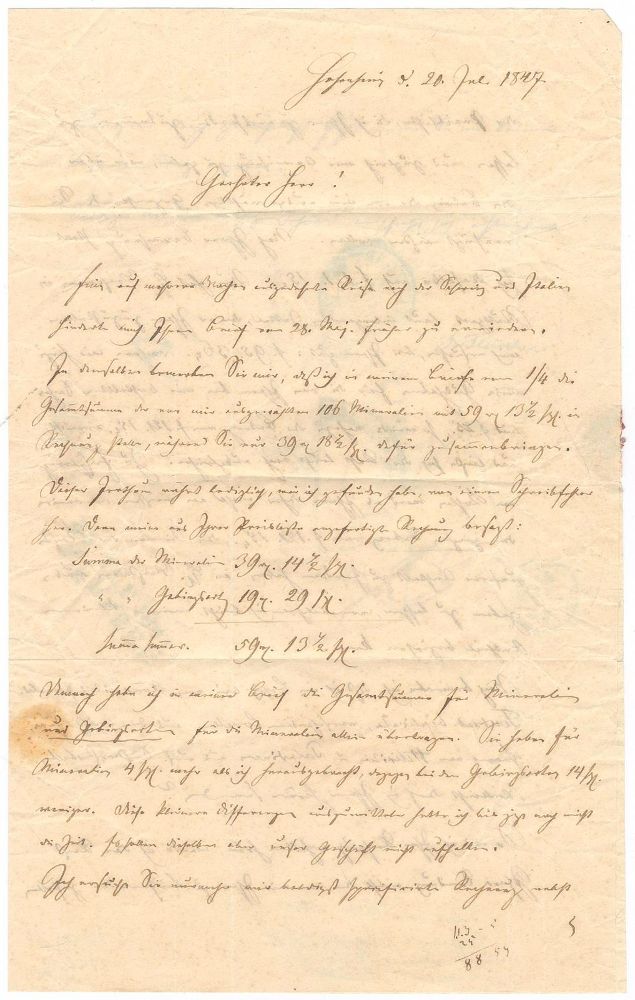 Hohenheim d. 20. Jul. 1847.
Geehrter Herr!
Eine auf mehrere Wochen ausgedehnte Reise nach der Schweiz und Italien
hinderte mich Ihren Brief vom 28. Maj. früher zu erwiedern.
In demselben bemerken Sie mir, daß ich in meinem Briefe vom 1/4 die
Gesammtsumme der von mir ausgewählten 106 Mineralien mit 59 rx 13 1/2 Sgl. in
Rechnung stelle, während Sie nur 39 rx 18 1/2 Sgl. dafür zusammenbringen.
Dieser Irrthum rührt lediglich, wie ich gefunden habe, von einem Schreibfehler
her. Denn meine aus Ihrer Preisliste angefertigte Rechnung besagt:
Summa der Mineralien 39 rx. 14 1/2 Sgl.
" " Gebirgsarten 19 rx. 29 Sgl.
Summa Summar. 59 rx. 13 1/2 Sgl.
Demnach habe ich in meinem Brief die Gesammtsumme für Mineralien
und Gebirgsarten für die Mineralien allein übertragen. Sie haben für
Mineralien 4 Sgl. mehr als ich herausgebracht, dagegen bei den Gebirgsarten 14 Sgl.
weniger. Diese kleinern Differenzen auszumitteln hatte ich bis jetzt noch nicht
die Zeit. sollen dieselben aber unser Geschäft nicht aufhalten.
Ich ersuche Sie nunmehr mir baldigst spezifizirte Rechnung nebst